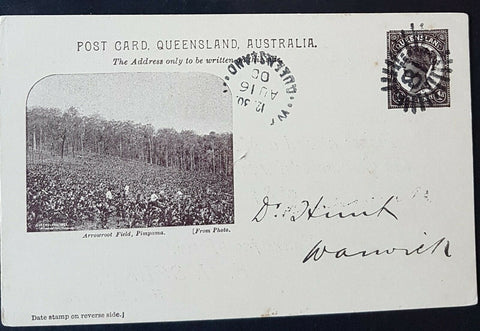 QUEENSLAND
POST CARD, QUEENSLAND, AUSTRALIA.
The Address only to be written
QUEENSLAND
12.30
AU 16
00
W
Arrowroot Field, Pimpama. [From Photo.
Dr. Hunt
Warwick
Date stamp on reverse side.]